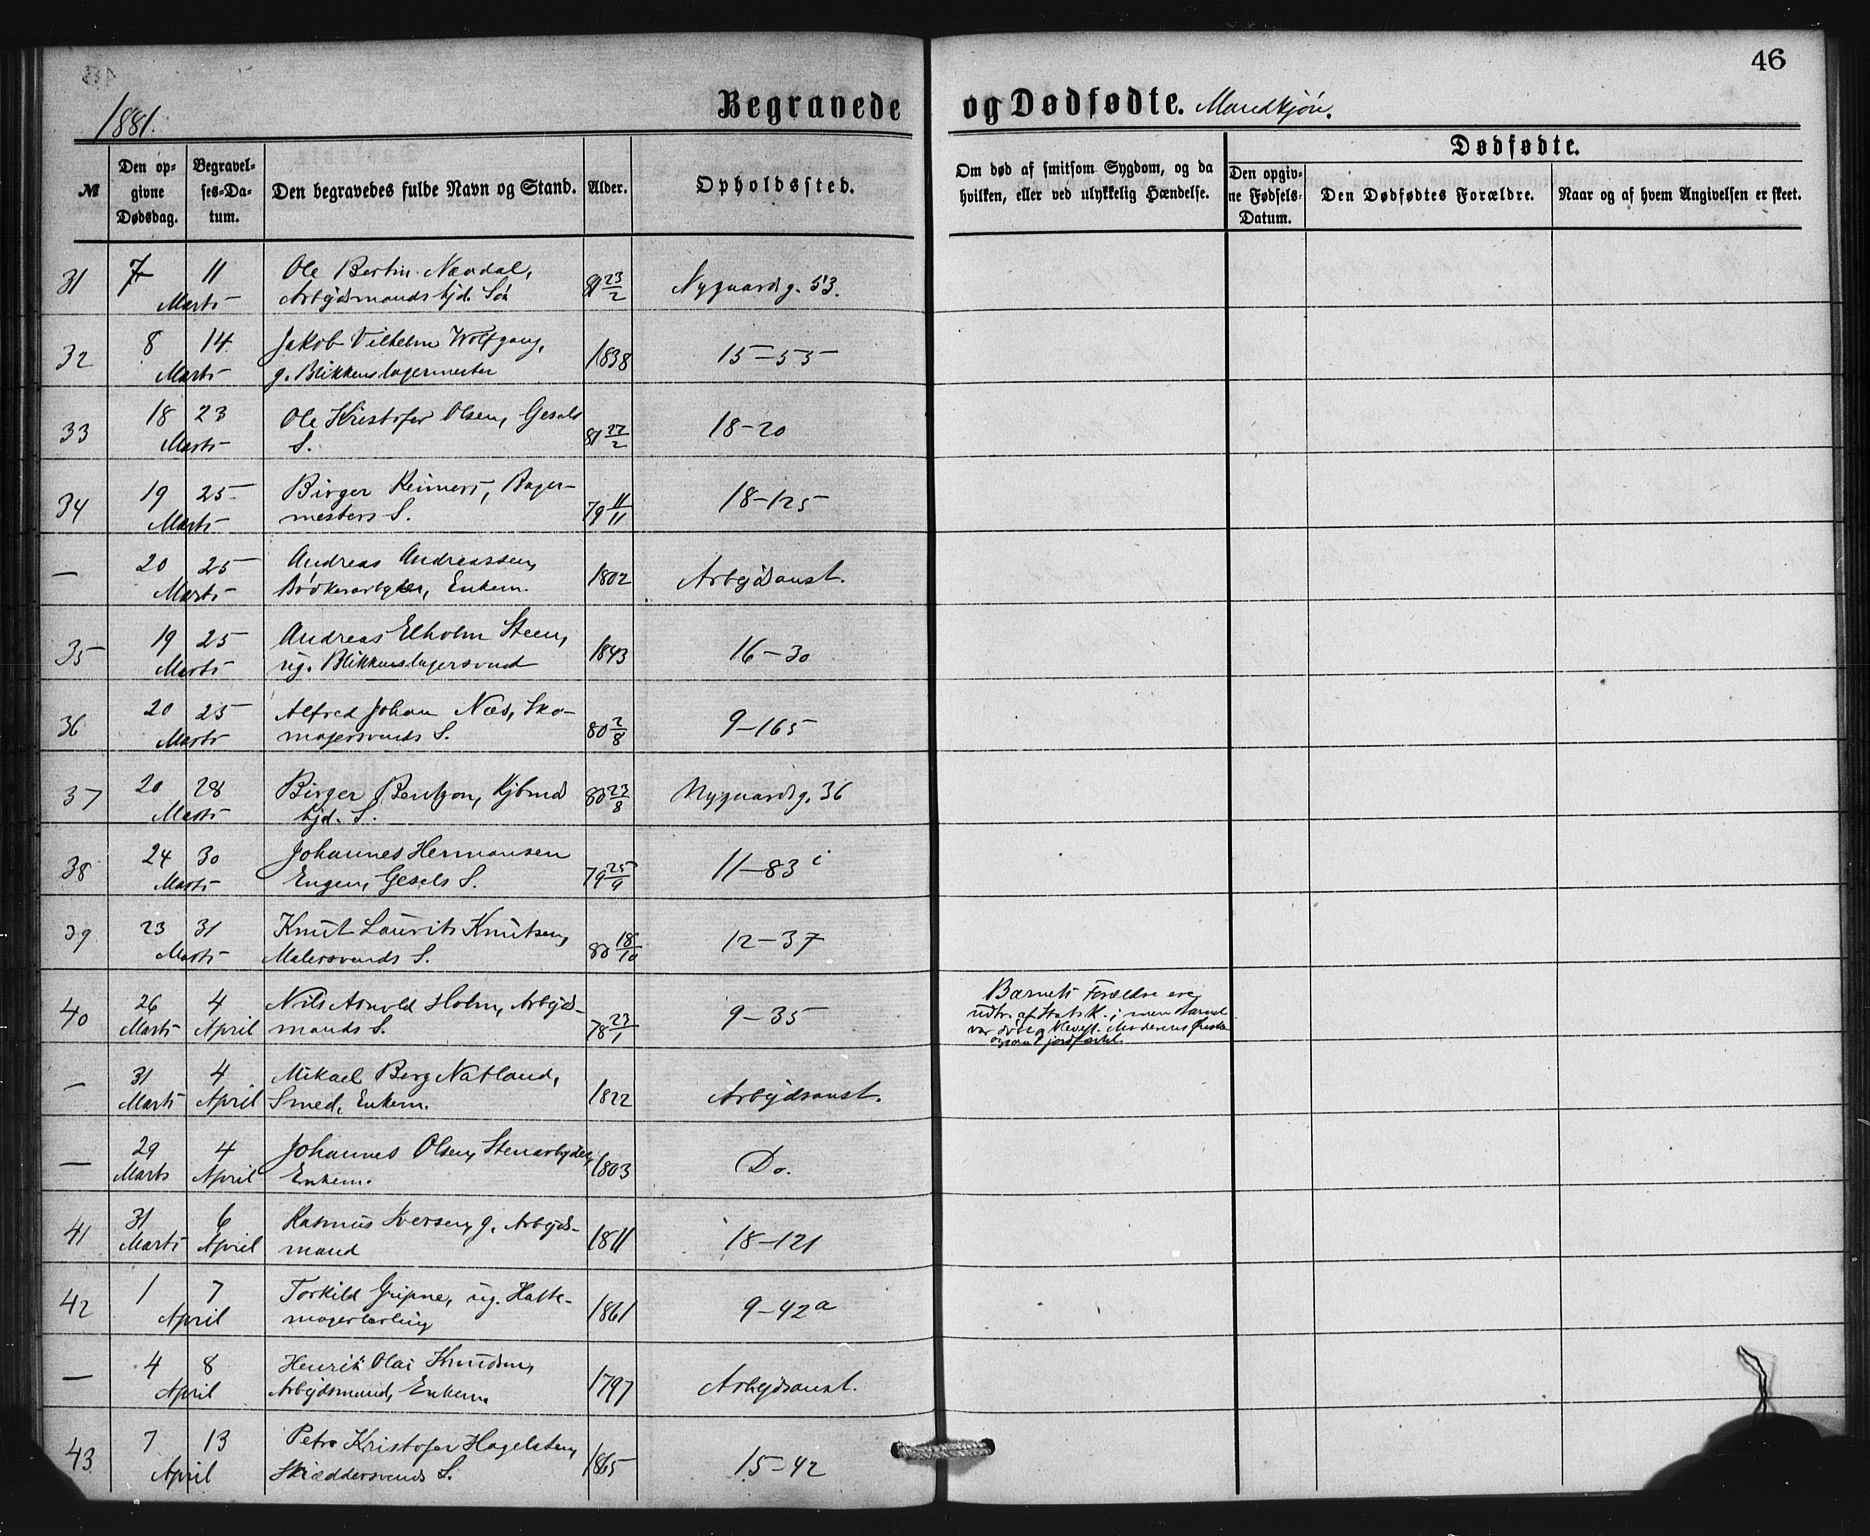 46
1881.
Begravede og Dødfødte. Mandkjøn.
№
Den opgivne Dødsdag.
Begravelses-Datum.
Den begravedes fulde Navn og Stand.
Alder.
Opholdssted.
Om død af smitsom Sygdom, og da hvilken, eller ved ulykkelig Hændelse.
Dødfødte.
Den opgivne Fødsels-Datum.
Den Dødfødtes Forældre.
Naar og af hvem Angivelsen er skeet.
31 7 11 Ole Bertin Nævdal, 81 23/2 Nygaardsg. 53.
Marts Arbejdsmands tjd. Søn
32 8 14 Jakob Vilhelm Wolfgang, 1838 15-55
Marts g. Blikkenslagermester
33 18 23 Ole Kristofer Olsen, Gesels 81 22/2 18-20
Marts S.
34 19 25 Birger Reimers, Bager- 79 11/11 18-125
Marts mesters S.
— 20 25 Andreas Andreassen, 1802 Arbejdsanst.
Marts Bødkerarbejder, Enkem.
35 19 25 Andreas Elholm Steen, 1843 16-30
Marts ug. Blikkenslagersvend
36 20 25 Alfred Johan Næs, Sko- 80 2/8 9-165
Marts magersvends S.
37 20 28 Birger Bentzon, Kjbmds 80 23/8 Nygaardsg. 36
Marts tjd. S.
38 24 30 Johannes Hermansen 79 25/9 11-83 i
Marts Engen, Gesels S.
39 23 31 Knut Laurits Knutsen, 80 18/10 12-37
Marts Malersvends S.
40 26 4 Nils Arnold Holm, Arbejds- 78 23/1 9-35
Marts April mands S.
Barnets Forældre ere
udtr. af Statsk.; men Barnet
var døbt
— 31 4 Mikael Berg Natland, 1822 Arbejdsanst.
Marts April Smed, Enkem.
— 29 4 Johannes Olsen, Stenarbejder, 1803 Do.
Marts April Enkem.
41 31 6 Rasmus Iversen, g. Arbejds- 1811 18-121
Marts April mand
42 1 7 Torkild Gripne, ug. Hatte- 1861 9-42a
April magerlærling
— 4 8 Henrik Olai Knudsen, 1797 Arbejdsanst.
April Arbejdsmand, Enkem.
43 7 13 Petro Kristofer Hagelsten, 1865 15-42
April Skræddersvends S.